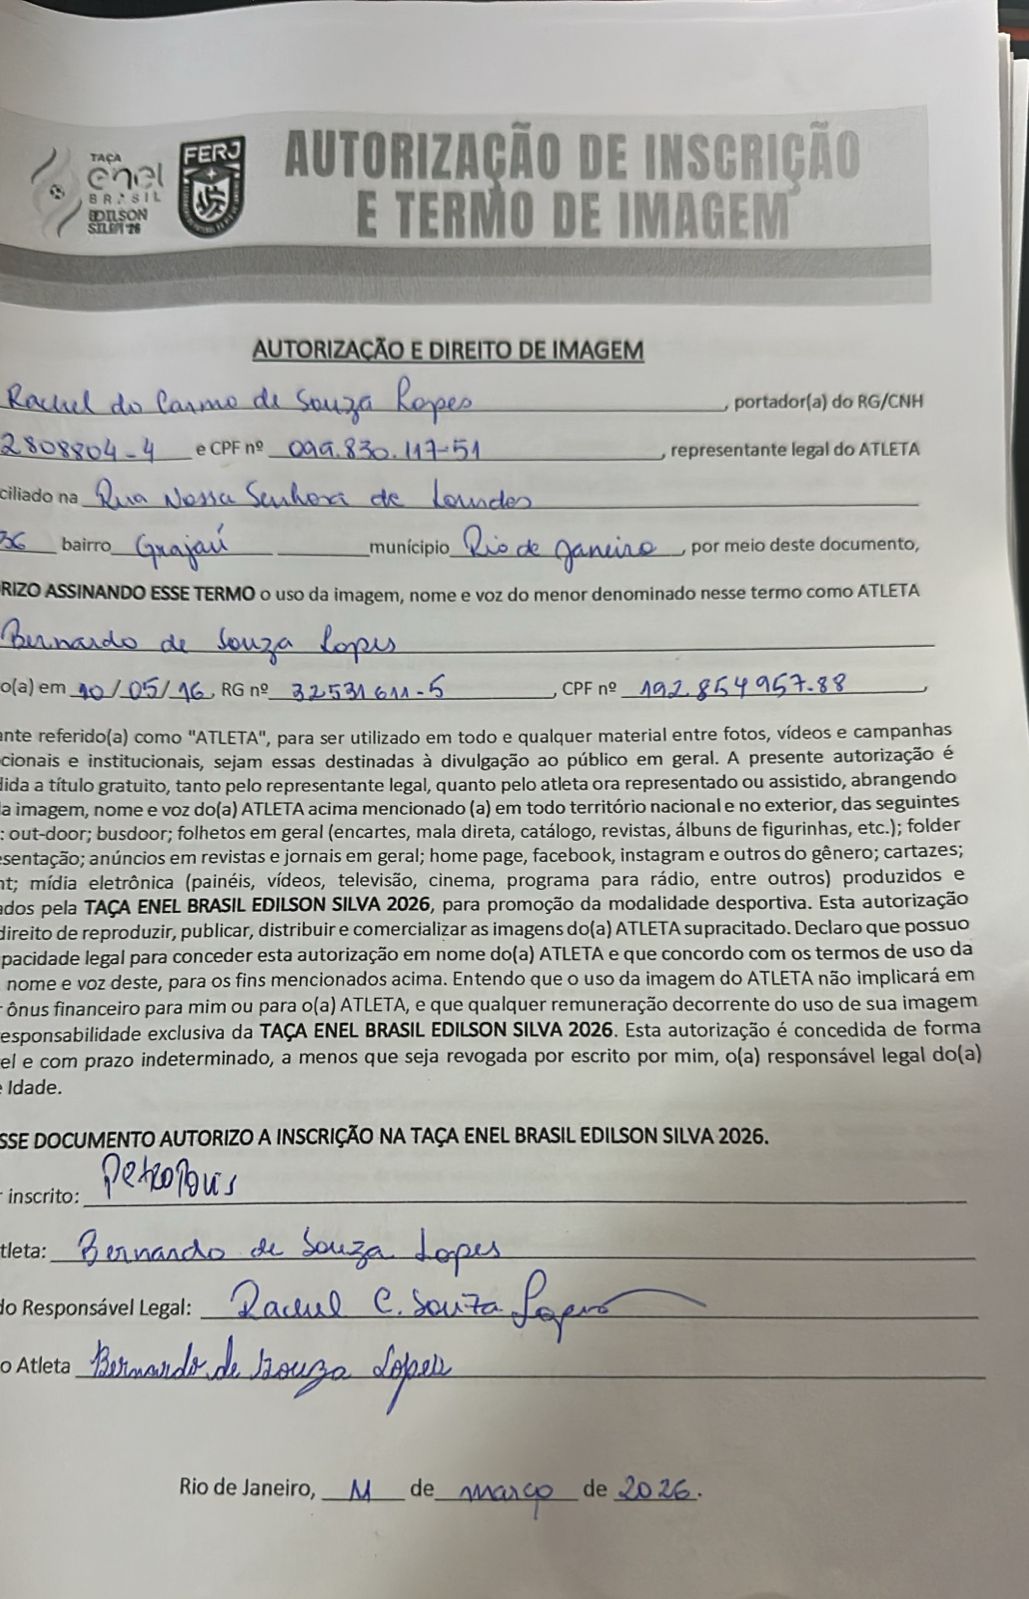 TAÇA
enel
BRASIL
EDILSON
SILVA '26
FERJ
AUTORIZAÇÃO DE INSCRIÇÃO
E TERMO DE IMAGEM
AUTORIZAÇÃO E DIREITO DE IMAGEM
Rachel do Carmo de Souza Lopes, portador(a) do RG/CNH
2808804-4 e CPF nº 099.830.117-51, representante legal do ATLETA
ciliado na Rua Nossa Senhora de Lourdes
36 bairro Grajaú munícipio Rio de Janeiro, por meio deste documento,
RIZO ASSINANDO ESSE TERMO o uso da imagem, nome e voz do menor denominado nesse termo como ATLETA
Bernardo de Souza Lopes
o(a) em 10/05/16, RG nº 32531611-5, CPF nº 192.854957-88,
ante referido(a) como "ATLETA", para ser utilizado em todo e qualquer material entre fotos, vídeos e campanhas
cionais e institucionais, sejam essas destinadas à divulgação ao público em geral. A presente autorização é
dida a título gratuito, tanto pelo representante legal, quanto pelo atleta ora representado ou assistido, abrangendo
da imagem, nome e voz do(a) ATLETA acima mencionado (a) em todo território nacional e no exterior, das seguintes
: out-door; busdoor; folhetos em geral (encartes, mala direta, catálogo, revistas, álbuns de figurinhas, etc.); folder
esentação; anúncios em revistas e jornais em geral; home page, facebook, instagram e outros do gênero; cartazes;
nt; mídia eletrônica (painéis, vídeos, televisão, cinema, programa para rádio, entre outros) produzidos e
ados pela TAÇA ENEL BRASIL EDILSON SILVA 2026, para promoção da modalidade desportiva. Esta autorização
direito de reproduzir, publicar, distribuir e comercializar as imagens do(a) ATLETA supracitado. Declaro que possuo
pacidade legal para conceder esta autorização em nome do(a) ATLETA e que concordo com os termos de uso da
, nome e voz deste, para os fins mencionados acima. Entendo que o uso da imagem do ATLETA não implicará em
r ônus financeiro para mim ou para o(a) ATLETA, e que qualquer remuneração decorrente do uso de sua imagem
responsabilidade exclusiva da TAÇA ENEL BRASIL EDILSON SILVA 2026. Esta autorização é concedida de forma
el e com prazo indeterminado, a menos que seja revogada por escrito por mim, o(a) responsável legal do(a)
e Idade.
SSE DOCUMENTO AUTORIZO A INSCRIÇÃO NA TAÇA ENEL BRASIL EDILSON SILVA 2026.
r inscrito: Petropolis
tleta: Bernardo de Souza Lopes
do Responsável Legal: Rachel C. Souza Lopes
o Atleta Bernardo de Souza Lopes
Rio de Janeiro, 11 de março de 2026.